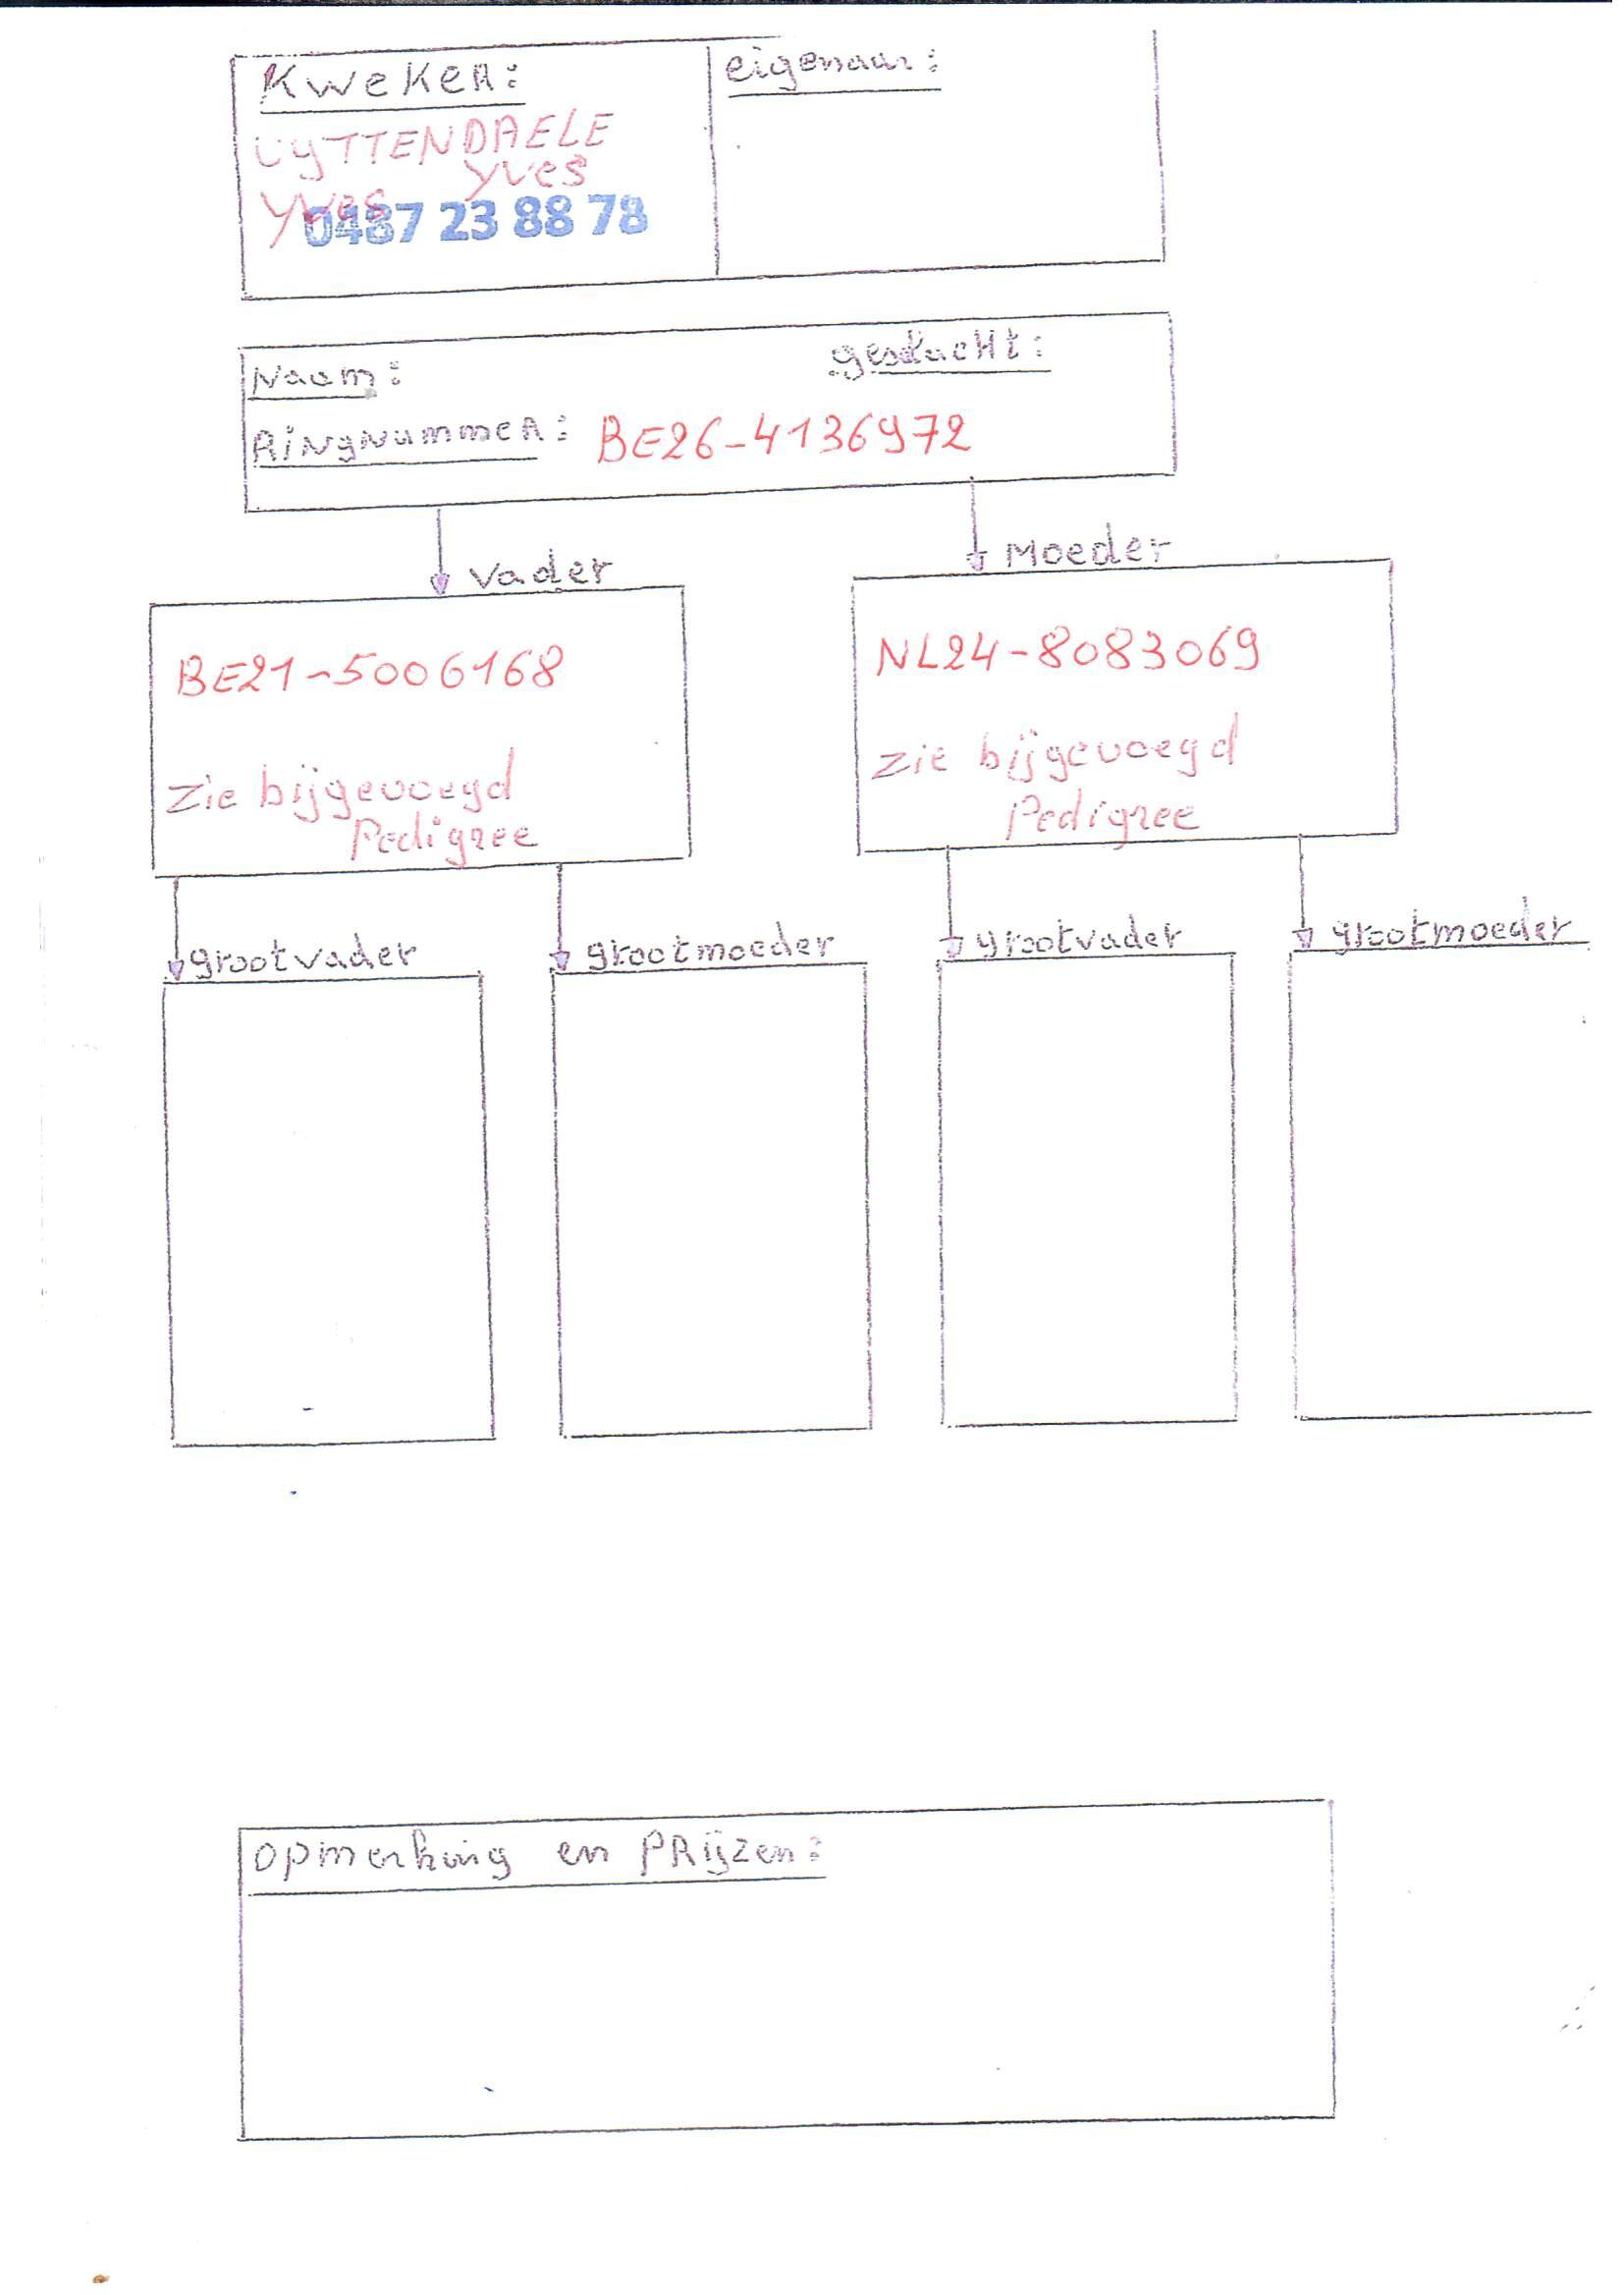 KWEKER:
eigenaar:
UYTTENDAELE
Yves
Yves
0487 23 88 78
Naam:
geslacht:
RINGNUMMER: BE26-4136972
Vader
Moeder
BE21-5006168
NL24-8083069
Zie bijgevoegd
Pedigree
Zie bijgevoegd
Pedigree
grootvader
grootmoeder
grootvader
grootmoeder
opmerking en PRijzen: